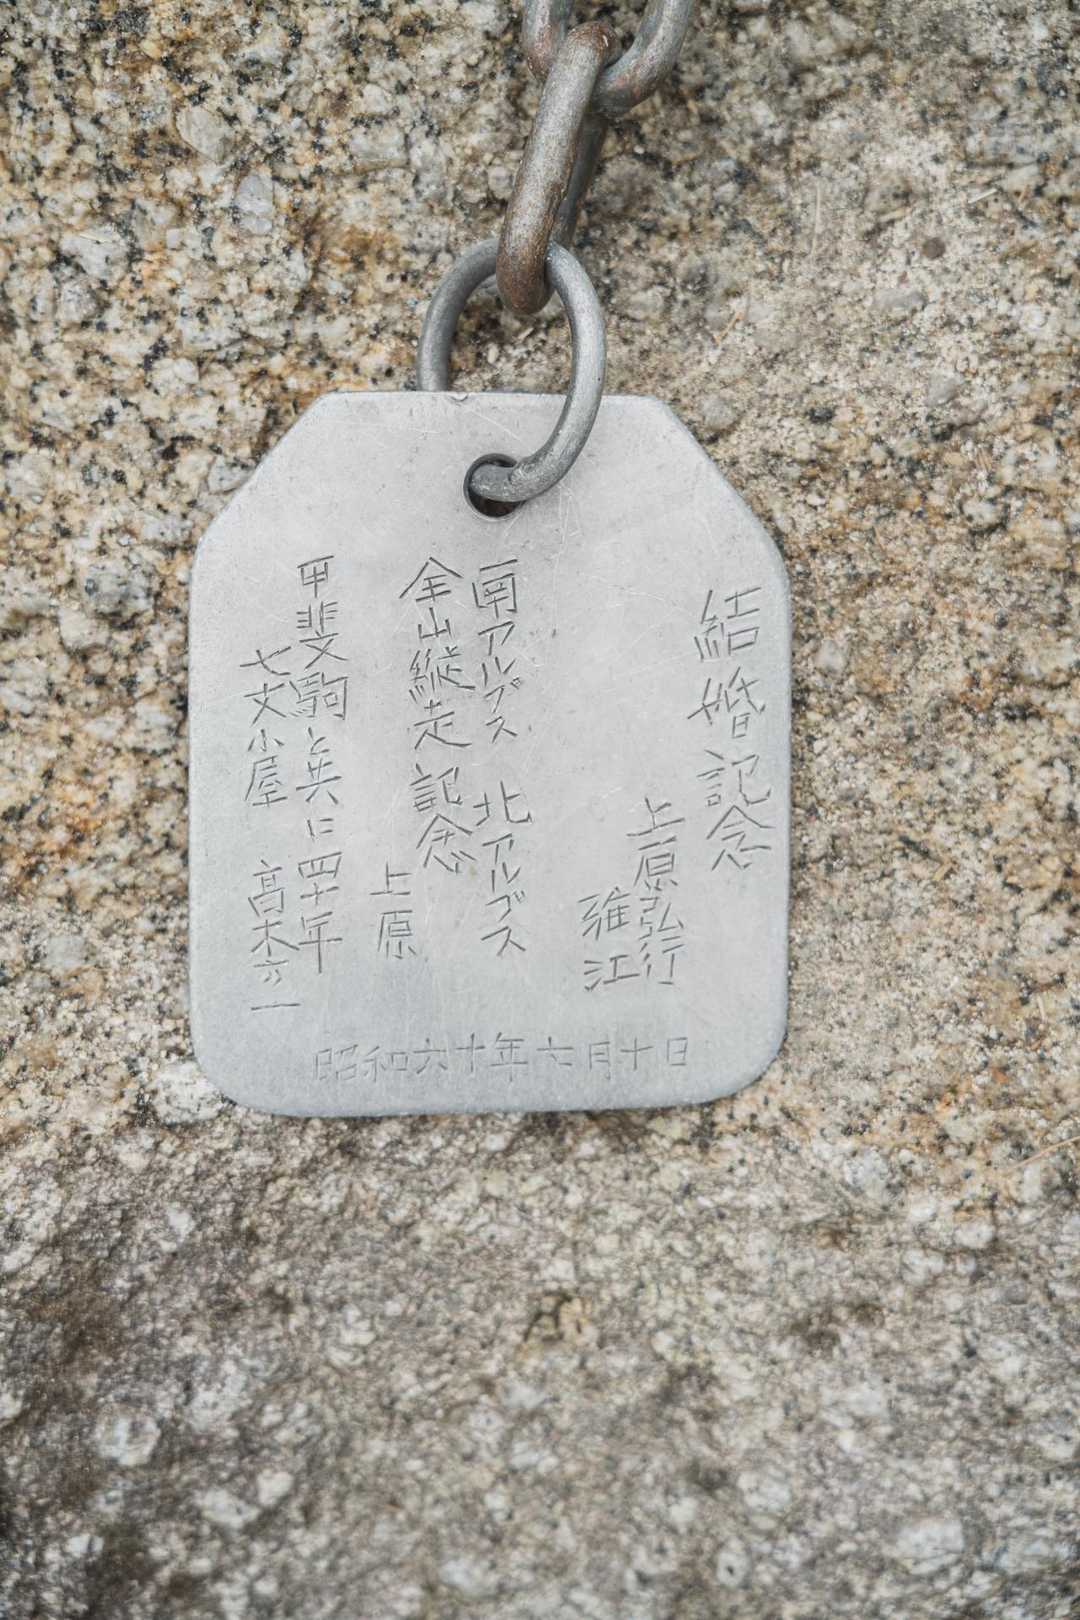 結婚記念
上原弘行
雅江
南アルプス 北アルプス
全山縦走記念
上原
甲斐駒と共に四十年
七丈小屋 高木六一
昭和六十年六月十日